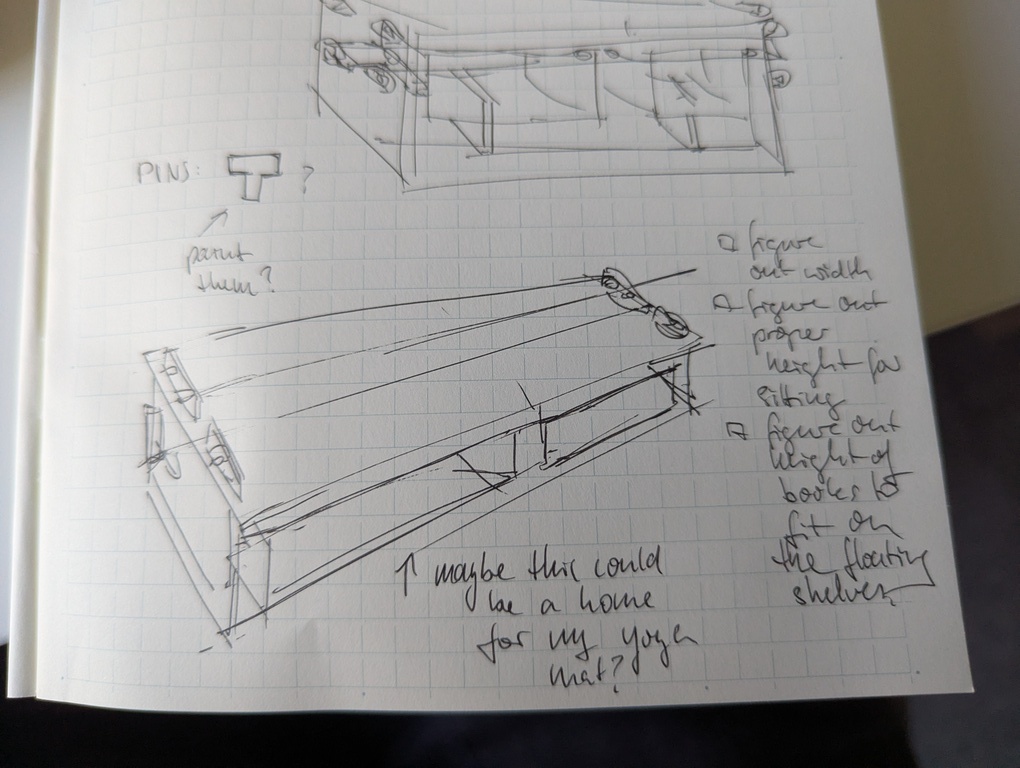 PINS: ?
paint
them?
□ figure
out width
□ figure out
proper
height for
sitting
□ figure out
height of
books to
fit on
the floating
shelves
↑ maybe this could
be a home
for my yoga
mat?